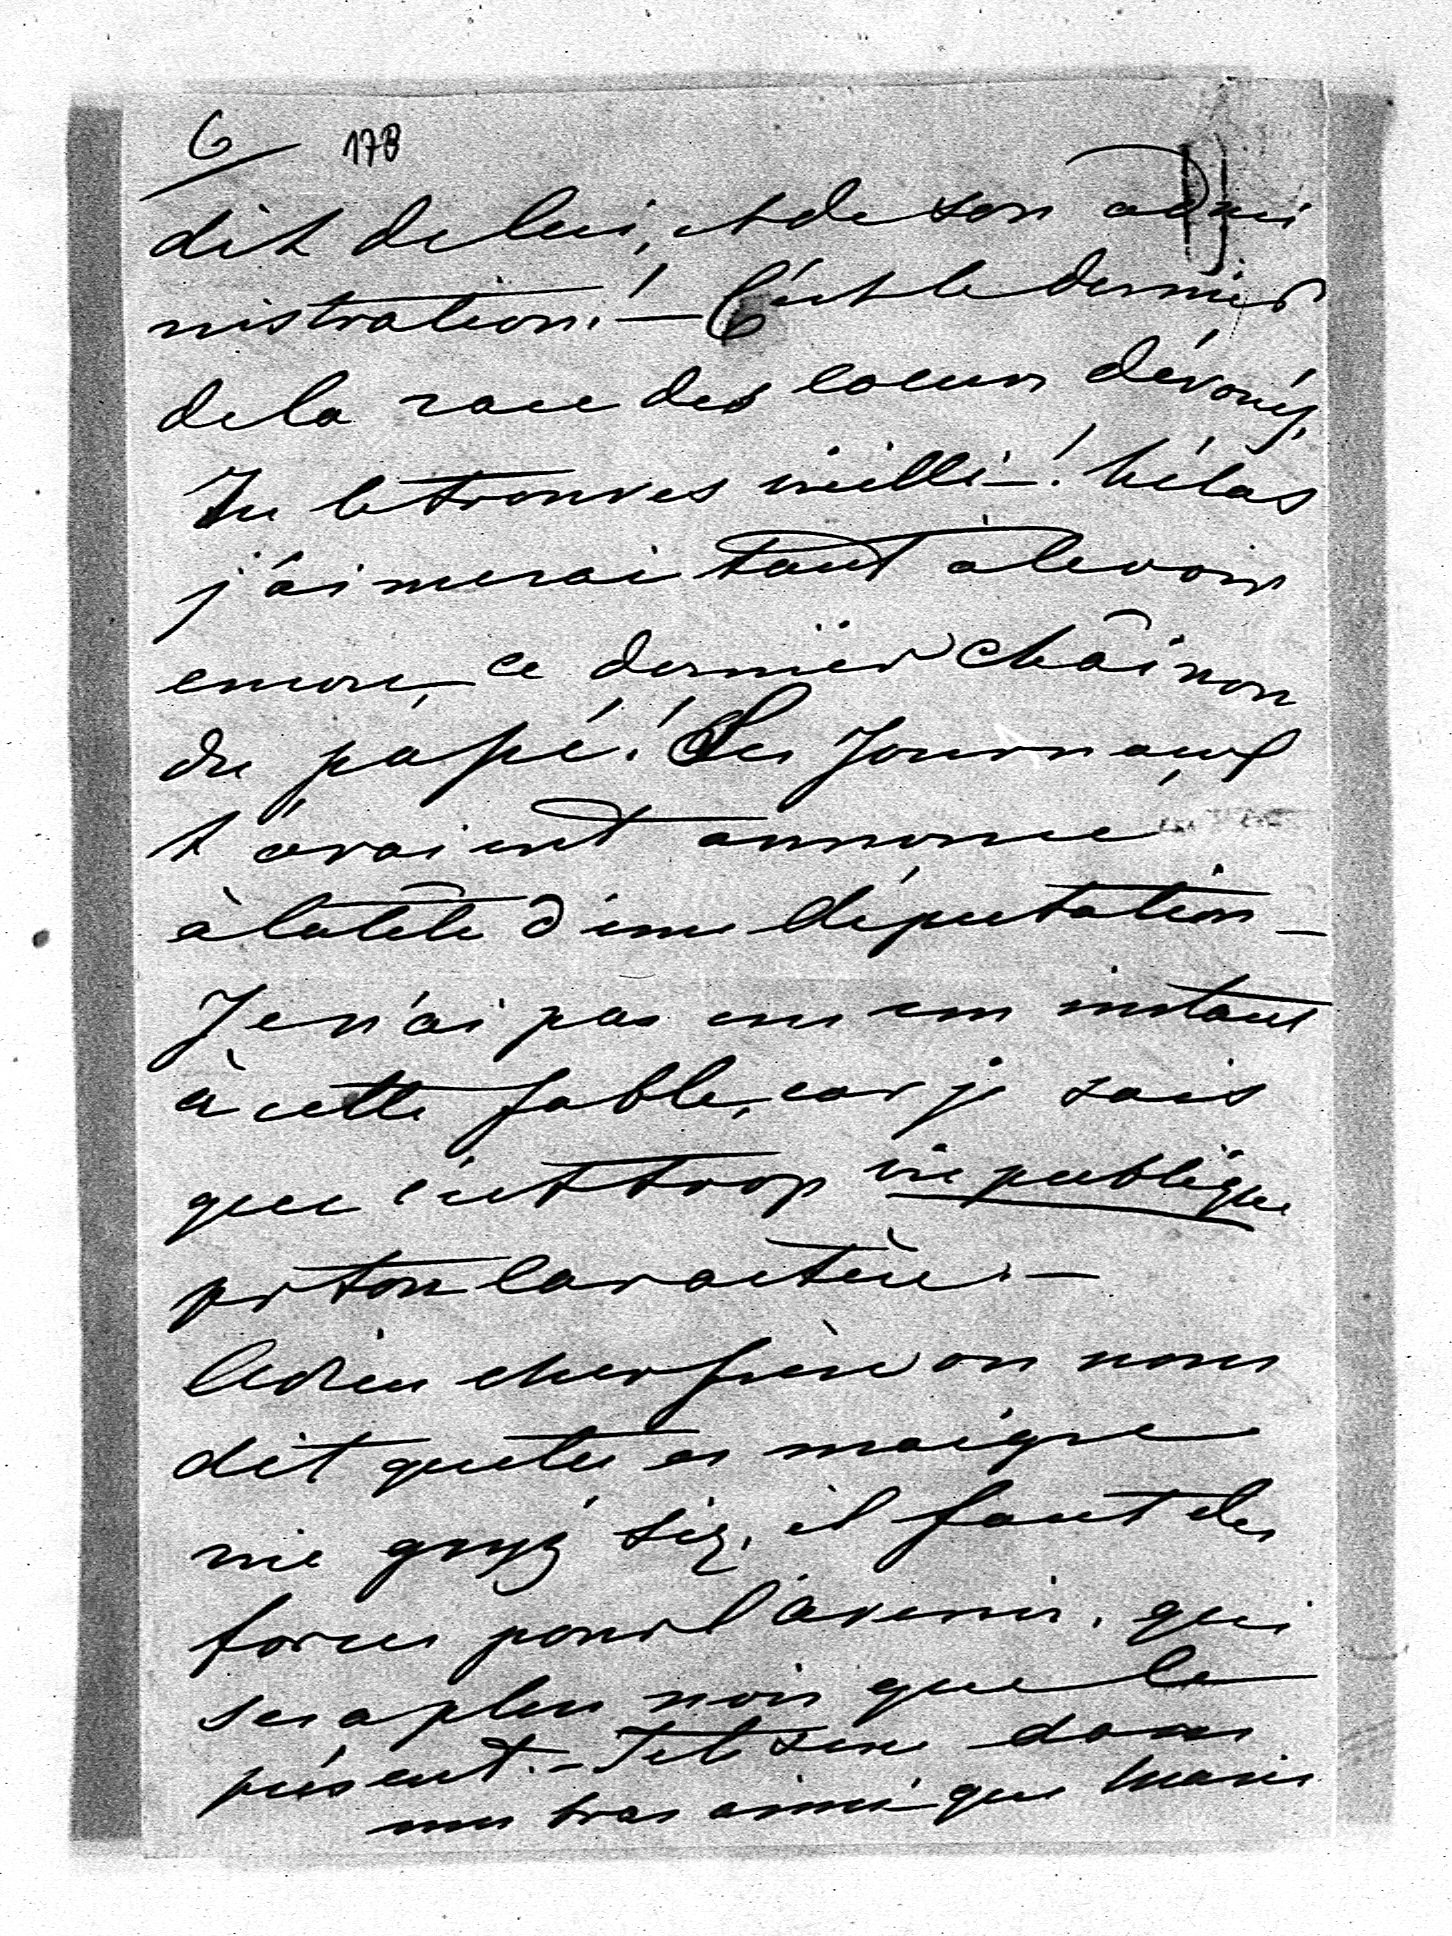 6 178
dit de lui, et de son admi
nistration! — C'est le dernier
de la race des coeurs dévoués,
Tu le trouves vieilli —! hélas
j'aimerai tant à le voir
encore, ce dernier chaînon
du passé! Les journaux
t'avaient annoncé
à la tête d'une députation —
Je n'ai pas cru un instant
à cette fable, car je sais
que c'est trop vie publique
pr ton caractère. —
Adieu cher frère on nous
dit que tu es maigre
il faut des
forces pour l'avenir, qui
sera plus noir que le
présent. — Je te serre dans
mes bras ainsi que Marie